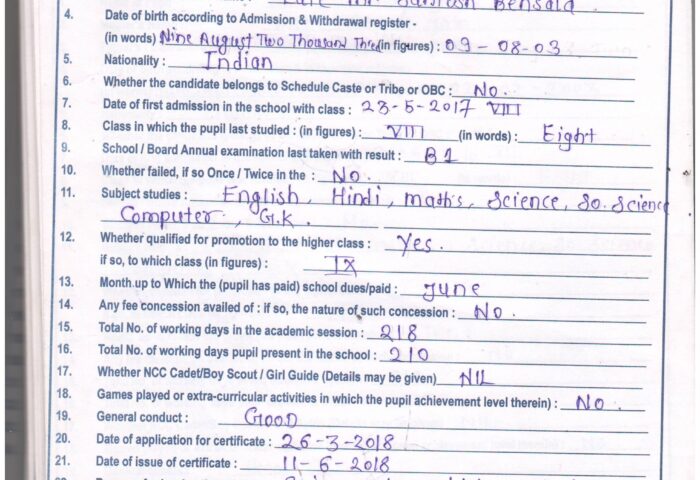 4. Date of birth according to Admission & Withdrawal register -
(in words) Nine August Two Thousand Three (in figures) : 09-08-03
5. Nationality : Indian
6. Whether the candidate belongs to Schedule Caste or Tribe or OBC : No.
7. Date of first admission in the school with class : 23-5-2017 VIII
8. Class in which the pupil last studied : (in figures) : VIII (in words) : Eight
9. School / Board Annual examination last taken with result : B1
10. Whether failed, if so Once / Twice in the : No.
11. Subject studies : English, Hindi, maths, Science, So. Science
Computer, G.K.
12. Whether qualified for promotion to the higher class : Yes.
if so, to which class (in figures) : IX
13. Month up to Which the (pupil has paid) school dues/paid : June
14. Any fee concession availed of : if so, the nature of such concession : No.
15. Total No. of working days in the academic session : 218
16. Total No. of working days pupil present in the school : 210
17. Whether NCC Cadet/Boy Scout / Girl Guide (Details may be given) NIL
18. Games played or extra-curricular activities in which the pupil achievement level therein) : No.
19. General conduct : Good
20. Date of application for certificate : 26-3-2018
21. Date of issue of certificate : 11-6-2018